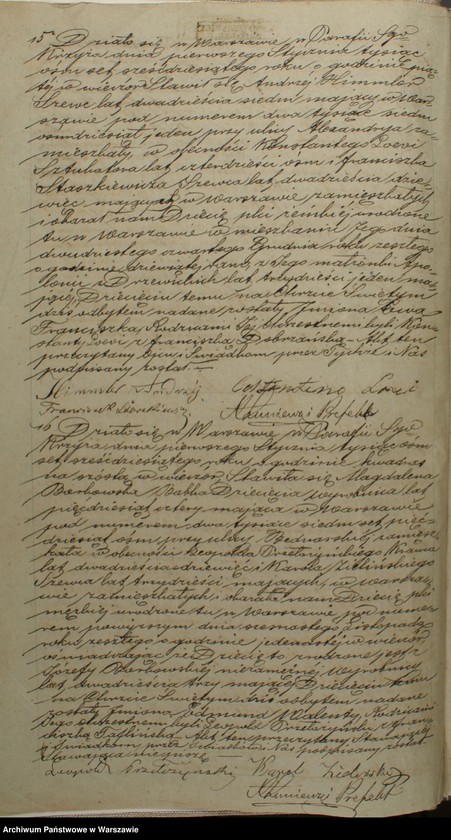 15 Działo się w Warszawie w Parafii Sgo
Krzyża dnia pierwszego Stycznia tysiąc
osmset sześćdziesiątego roku o godzinie pią
tej w wieczór Stawił się Andrzej Himmler
Szewc lat dwadzieścia siedm mający w War
szawie pod numerem dwa tysiąc siedm
osmdziesiąt jeden przy ulicy Alexandrya za
mieszkały, w obecności Konstantego Loevi
Sztukatora lat czterdzieści osm i Franciszka
Staszkiewicza Szewca lat dwadzieścia dzie
więć mających w Warszawie zamieszkałych
i okazał nam Dziecię płci żeńskiej urodzone
tu w Warszawie w mieszkaniu Jego dnia
dwudziestego czwartego Grudnia roku zeszłego
o godzinie dziewiątej rano z Jego małżonki Apo
lonii z Drzewickich lat trzydzieści jeden ma
jącej Dziecięciu temu na Chrzcie Świętym
dziś odbytym nadane zostały Imiona Ewa
Franciszka, Rodzicami Jej Chrzestnemi byli Kon
stanty Loevi i Franciszka Dobrzańska Akt ten
przeczytany Ojcu i Świadkom przez Tychże i Nas
podpisany został
Himmler Andrzej Costantino Loevi
Franciszek
16 Działo się w Warszawie w Parafii Sgo
Krzyża dnia pierwszego Stycznia tysiąc osm
set sześćdziesiątego roku o godzinie kwadrans
na szóstą w wieczór Stawiła się Magdalena
Borkowska Babka Dziecięcia wyrobnica lat
pięćdziesiąt cztery mająca w Warszawie
pod numerem dwa tysiąc siedm set pięć
dziesiąt osm przy ulicy Bednarskiej zamiesz
kała w obecności Leopolda
lat dwadzieścia dziewięć i Karola Zielińskiego
Szewca lat trzydzieści mających, w Warsza
wie zamieszkałych i okazała nam Dziecię płci
męzkiej urodzone tu w Warszawie pod nume
rem powyższym dnia szesnastego Listopada
roku zeszłego o godzinie jedenastej w wieczór
oświadczając że Dziecię to zrodzone jest z
Józefy Borkowskiej niezamężnej Wyrobnicy
lat dwadzieścia trzy mającej Dziecięciu temu
na Chrzcie Świętym dziś odbytym nadane
zostały Imiona Edmund Walenty, Rodzicami
Jego Chrzestnemi byli Leopold i Fran
ciszka Akt ten przeczytany Stawającej
i Świadkom przez Świadków i Nas podpisany został
Stawająca niepiśmie
Leopold Karol Zieliński
Archiwum Państwowe w Warszawie